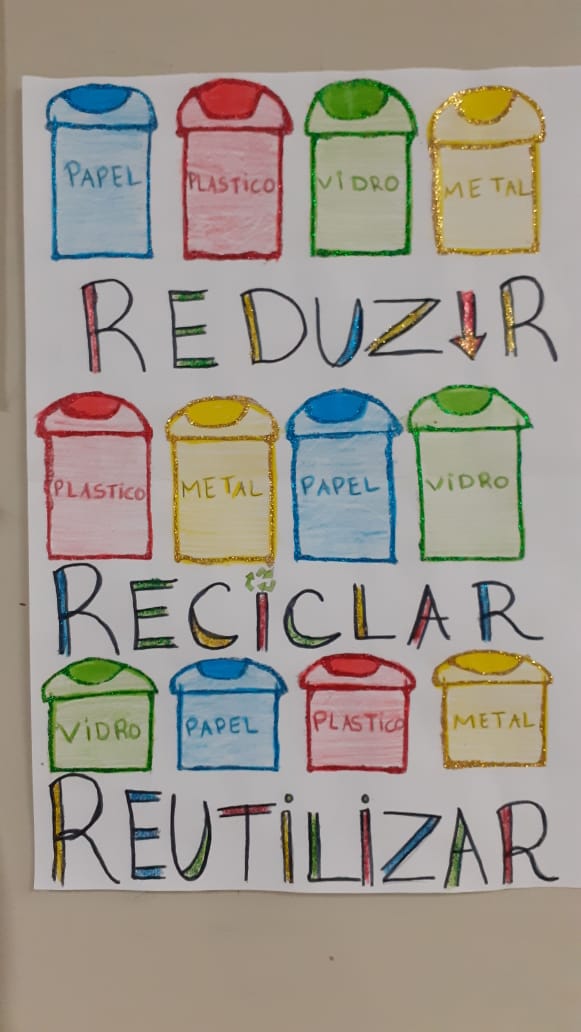 PAPEL PLASTICO VIDRO METAL
REDUZIR
PLASTICO METAL PAPEL VIDRO
RECICLAR
VIDRO PAPEL PLASTICO METAL
REUTILIZAR